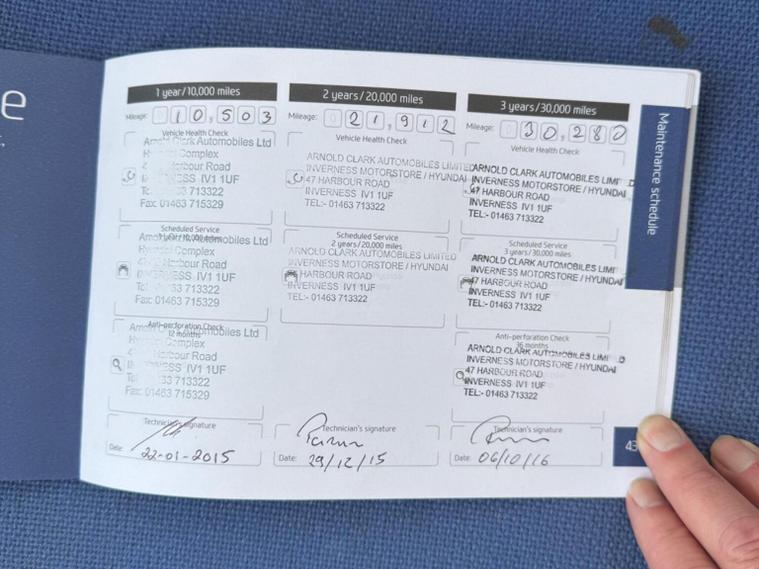 e
1 year/10,000 miles
Mileage: 0 10,503
Vehicle Health Check
Arnold Clark Automobiles Ltd
Complex
Harbour Road
INVERNESS IV1 1UF
713322
Fax: 01463 715329
Scheduled Service
1 year/10,000 miles
Arnold Clark Automobiles Ltd
Complex
Harbour Road
INVERNESS IV1 1UF
713322
Fax: 01463 715329
Anti-perforation Check
12 months
Automobiles Ltd
Complex
Harbour Road
IV1 1UF
713322
Fax: 01463 715329
Technician's signature
Date: 22-01-2015
2 years/20,000 miles
Mileage: 0 21,912
Vehicle Health Check
ARNOLD CLARK AUTOMOBILES LIMITED
INVERNESS MOTORSTORE / HYUNDAI
47 HARBOUR ROAD
INVERNESS IV1 1UF
TEL:- 01463 713322
Scheduled Service
2 years/20,000 miles
ARNOLD CLARK AUTOMOBILES LIMITED
INVERNESS MOTORSTORE / HYUNDAI
HARBOUR ROAD
INVERNESS IV1 1UF
TEL:- 01463 713322
Technician's signature
Date: 29/12/15
3 years/30,000 miles
Mileage: 0 30,280
Vehicle Health Check
ARNOLD CLARK AUTOMOBILES LIMI D
INVERNESS MOTORSTORE / HYUNDAI
47 HARBOUR ROAD
INVERNESS IV1 1UF
TEL:- 01463 713322
Scheduled Service
3 years/30,000 miles
ARNOLD CLARK AUTOMOBILES LIMI
INVERNESS MOTORSTORE / HYUNDAI
47 HARBOUR ROAD
INVERNESS IV1 1UF
TEL:- 01463 713322
Anti-perforation Check
36 months
ARNOLD CLARK AUTOMOBILES LIMI D
INVERNESS MOTORSTORE / HYUNDAI
47 HARBOUR ROAD
INVERNESS IV1 1UF
TEL:- 01463 713322
Technician's signature
Date: 06/10/16
Maintenance schedule
43